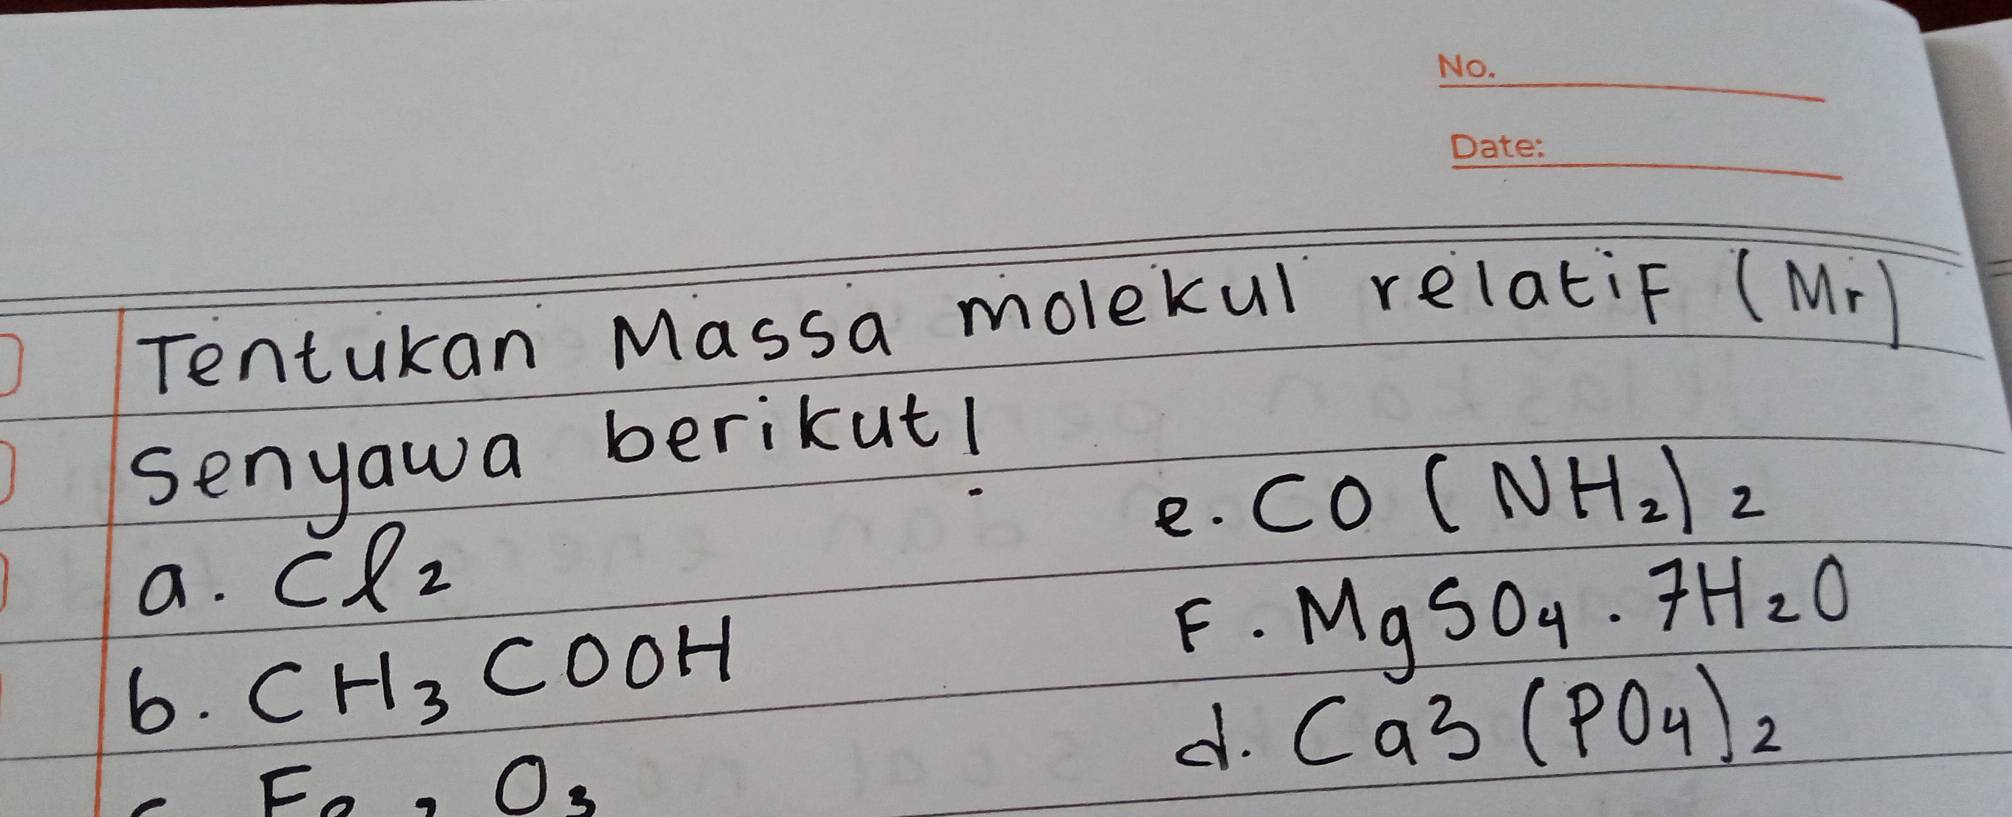 No.
Date:
Tentukan Massa molekul relatif (Mr)
Senyawa berikut!
a. Cl₂
b. CH₃COOH
c. Fe₂O₃
e. CO(NH₂)₂
F. MgSO₄ . 7H₂O
d. Ca3(PO₄)₂